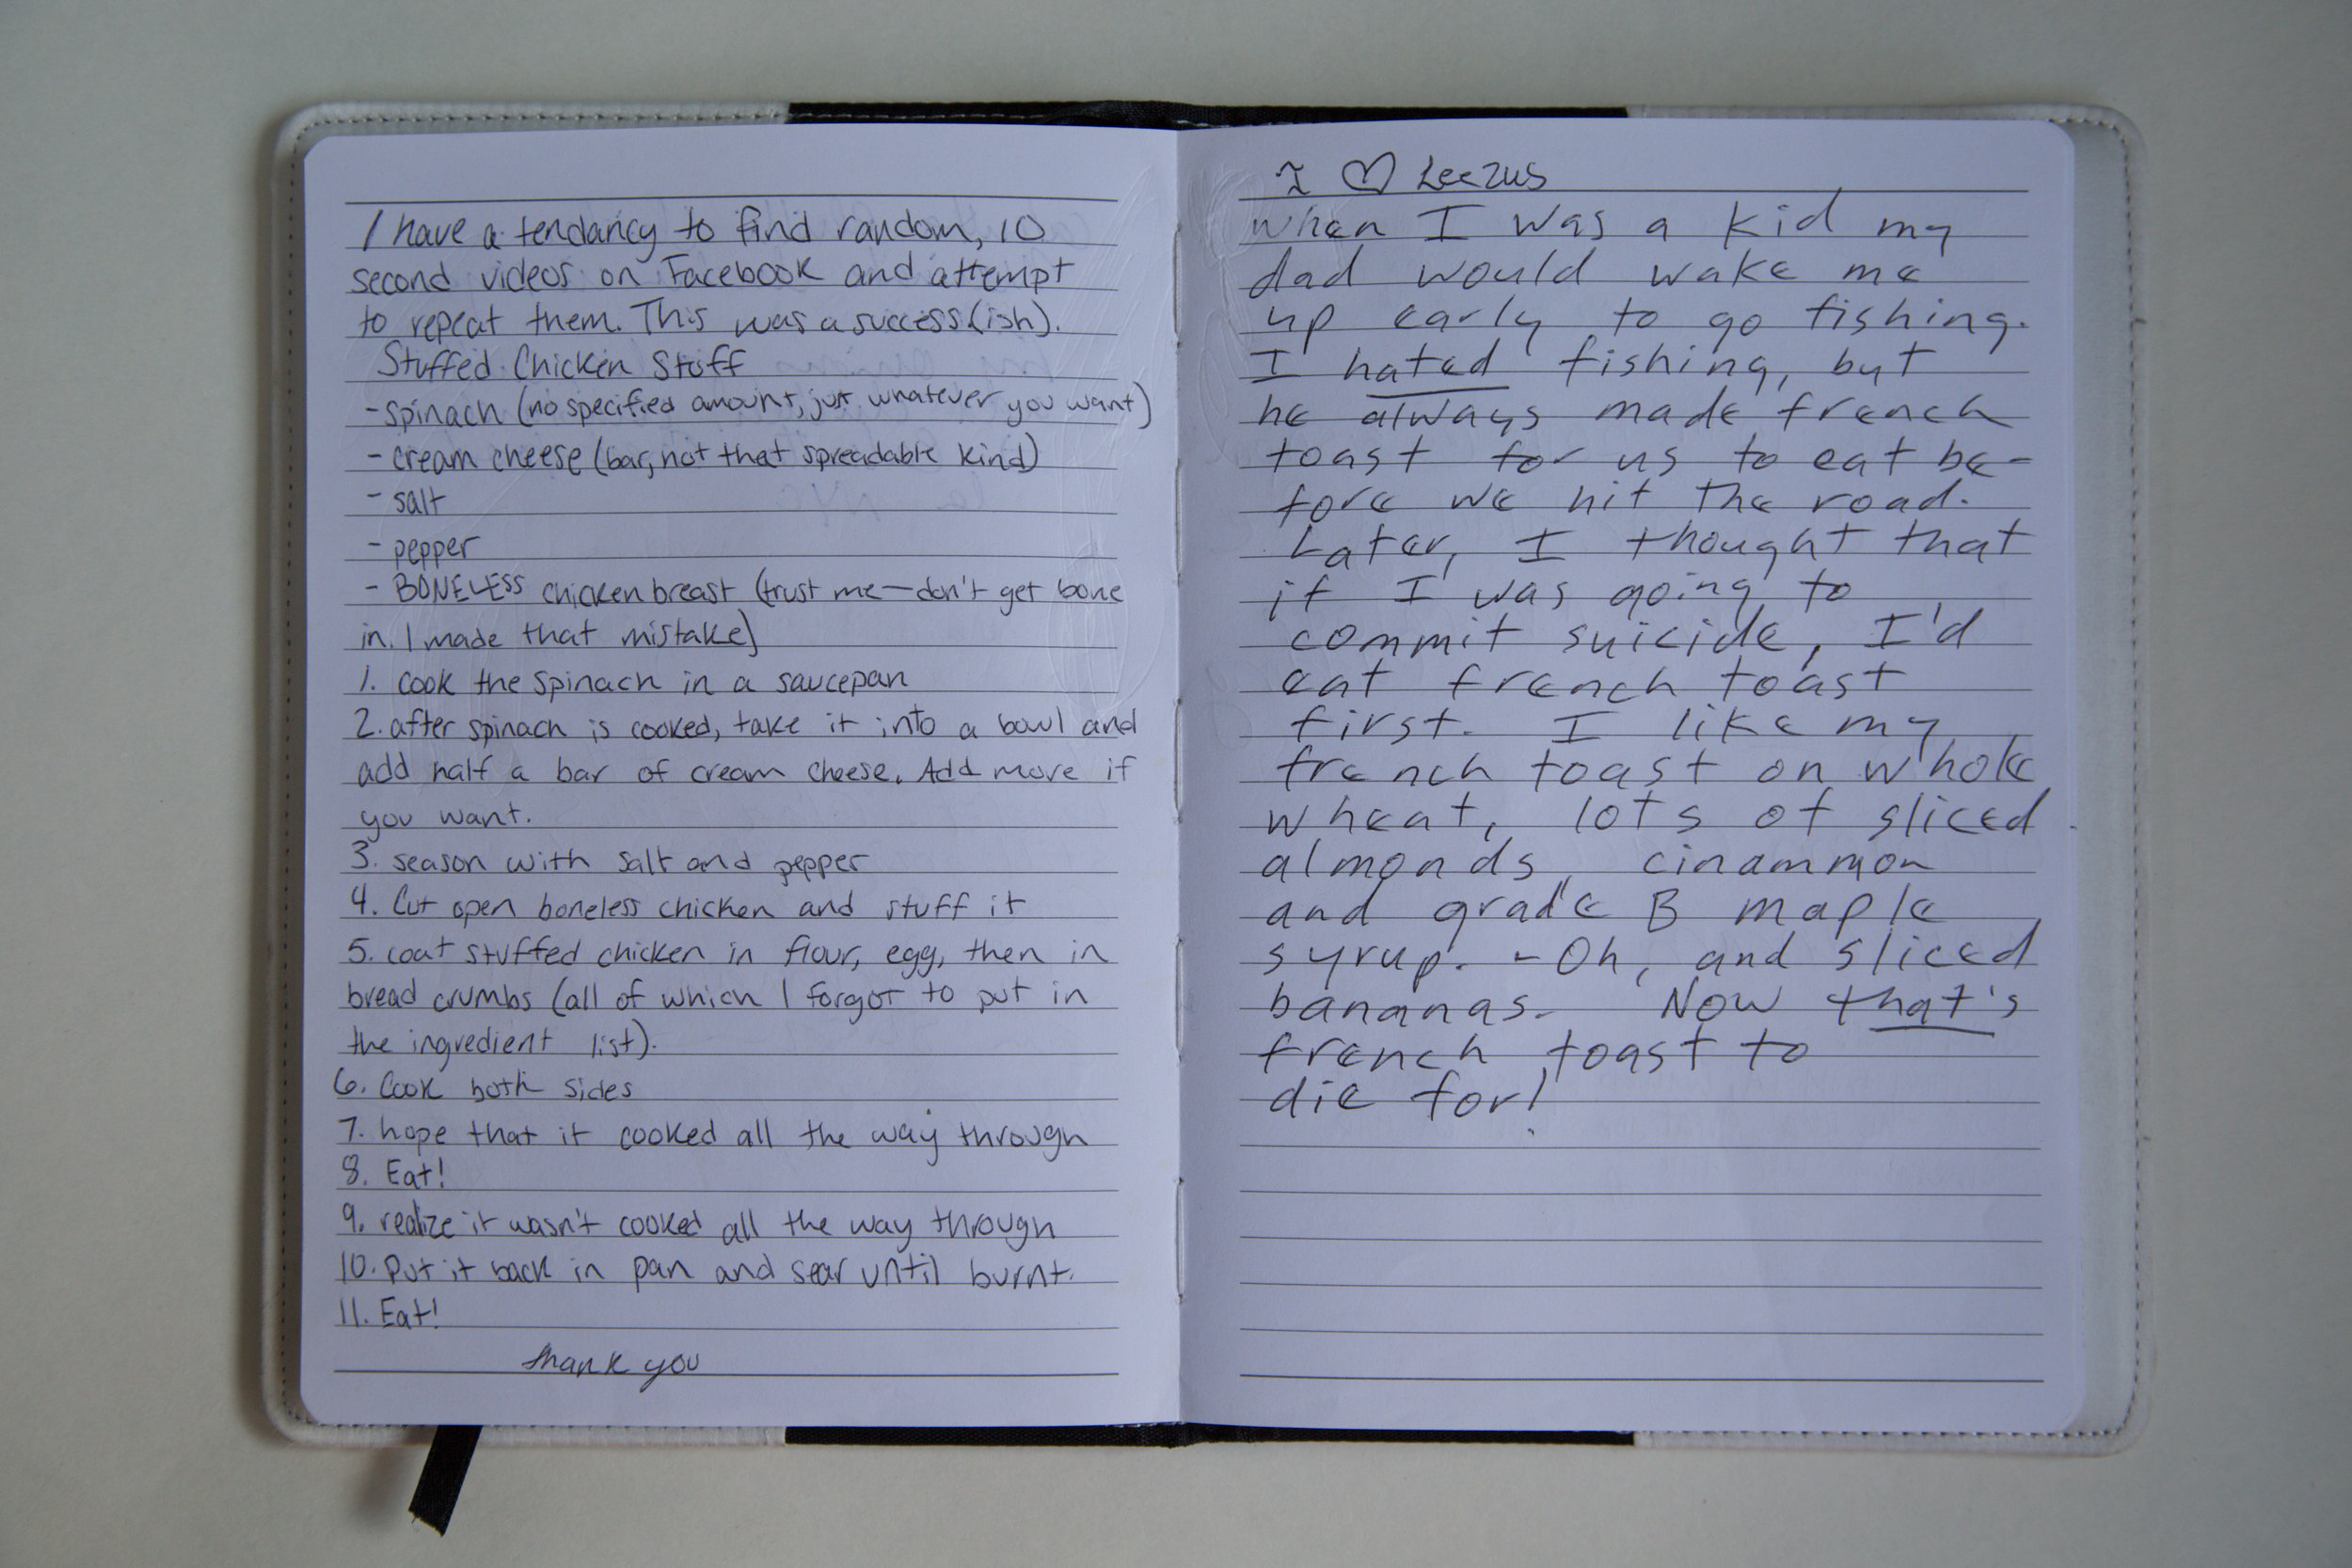 I have a tendancy to find random, 10
second videos on Facebook and attempt
to repeat them. This was a success.(ish).
Stuffed Chicken Stuff
- spinach (no specified amount, just whatever you want)
- cream cheese (bar, not that spreadable kind)
- salt
- pepper
- BONELESS chicken breast (trust me—don't get bone
in. I made that mistake)
1. cook the spinach in a saucepan
2. after spinach is cooked, take it into a bowl and
add half a bar of cream cheese. Add more if
you want.
3. season with salt and pepper
4. Cut open boneless chicken and stuff it
5. coat stuffed chicken in flour, egg, then in
bread crumbs (all of which I forgot to put in
the ingredient list).
6. Cook both sides
7. hope that it cooked all the way through
8. Eat!
9. realize it wasn't cooked all the way through
10. Put it back in pan and sear until burnt.
11. Eat!
thank you
I ♡ Leezus
when I was a kid my
dad would wake me
up early to go fishing.
I hated fishing, but
he always made french
toast for us to eat be-
fore we hit the road.
Later, I thought that
if I was going to
commit suicide, I'd
eat french toast
first. I like my
french toast on whole
wheat, lots of sliced
almonds, cinammon
and grade B maple
syrup. - Oh, and sliced
bananas. Now that's
french toast to
die for!